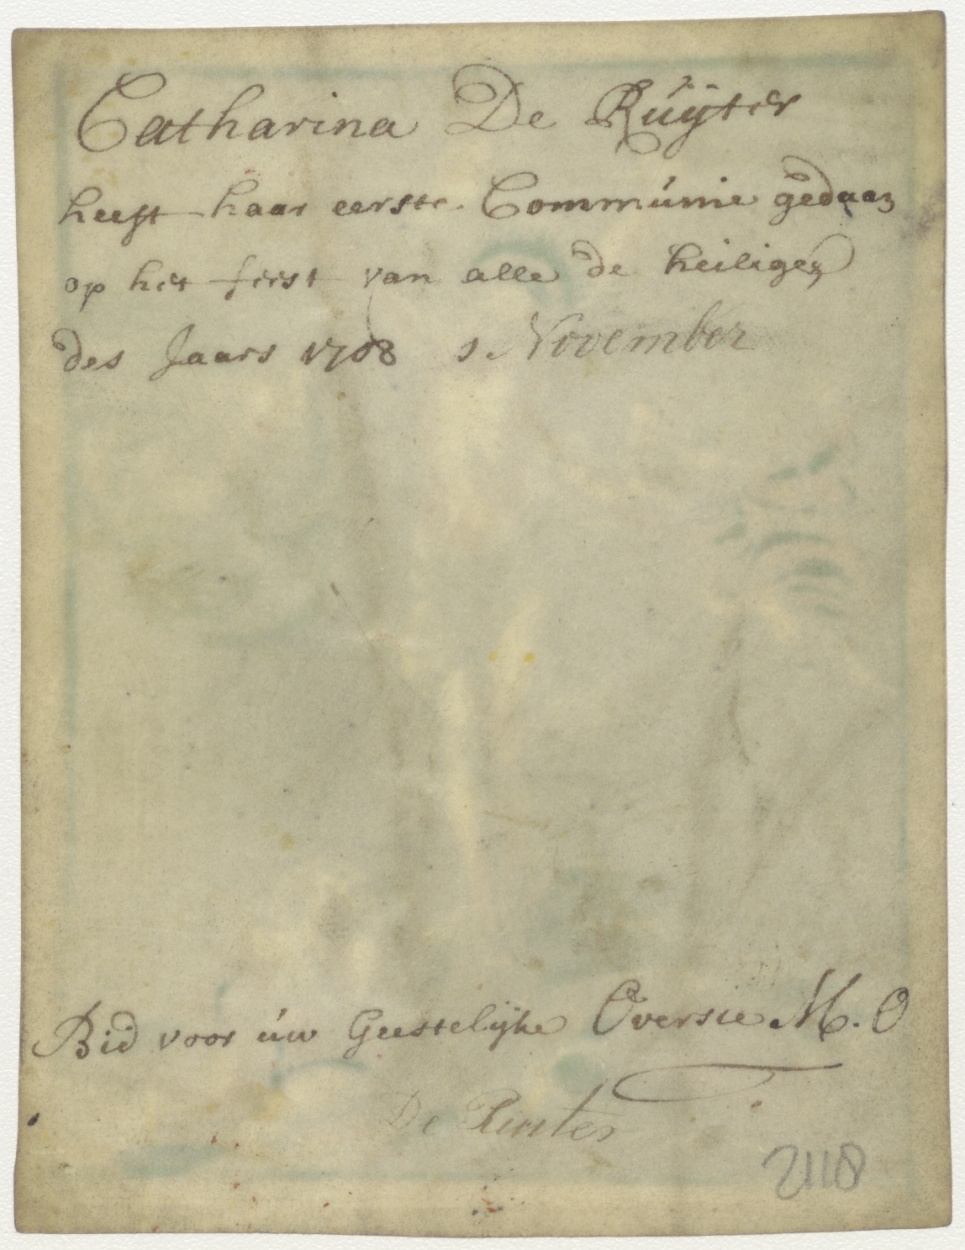 Catharina De Ruÿter
heeft haar eerste. Commúnie gedaan
op het feest van alle de heiligen
des Jaars 1768 1. November
Bid voor úw Geestelijke Overste M. O
De Ruiter
2118